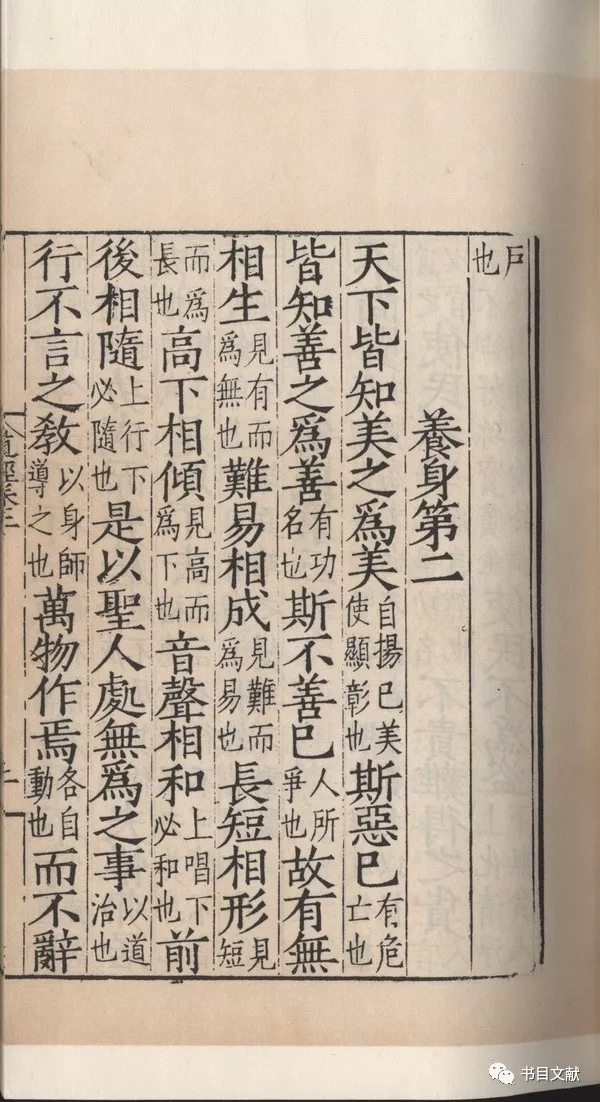 戶也
養身第二
天下皆知美之爲美自揚己美使顯彰也斯惡已有危亡也
皆知善之爲善有功名也斯不善已人所爭也故有無
相生見有而爲無也難易相成見難而爲易也長短相形見短
而爲長也高下相傾見高而爲下也音聲相和上唱下必和也前
後相隨上行下必隨也是以聖人處無爲之事以道治也
行不言之教以身師導之也萬物作焉各自動也而不辭
书目文献